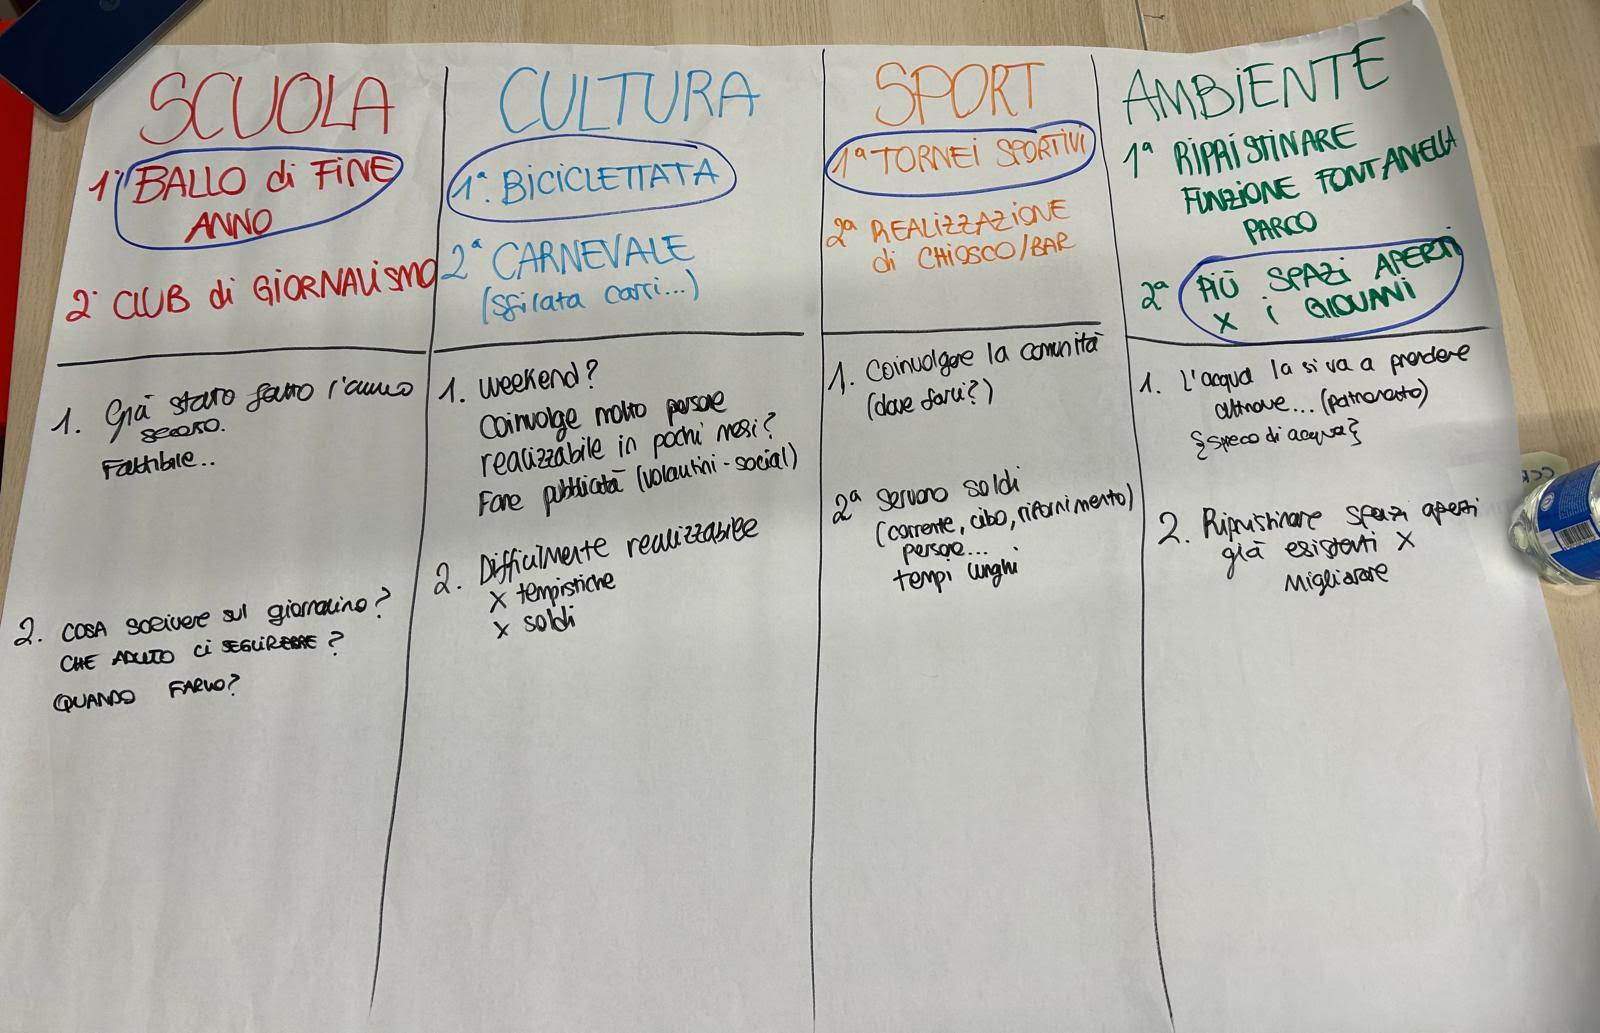 SCUOLA
1° BALLO di FINE
ANNO
2° CLUB di GIORNALISMO
1. Già stato fatto l'anno
scorso.
Fattibile..
2. COSA SCRIVERE SUL giornalino?
CHE ADULTO Ci SEGUIREBBE?
QUANDO FARLO?
CULTURA
1ª. BiCiCLETTATA
2ª CARNEVALE
(sfilata carri...)
1. weekend?
coinvolge molto persone
realizzabile in pochi mesi?
Fare pubblicità (volantini - social)
2. Difficilmente realizzabile
x tempistiche
x soldi
SPORT
1ª TORNEi SPORTIVI
2ª REALIZZAZIONE
di CHIOSCO/BAR
1. Coinvolgere la comunità
(dove farli?)
2ª Servono soldi
(corrente, cibo, rifornimento)
persone...
tempi lunghi
AMBiENTE
1ª RIPRISTINARE
FUNZIONE FONTANELLA
PARCO
2ª PIÙ SPAZi APERTI
X i GIOVANI
1. L'acqua la si va a prendere
altrove... (patronato)
{spreco di acqua}
2. Ripristinare spazi aperti
già esistenti X
Migliorare